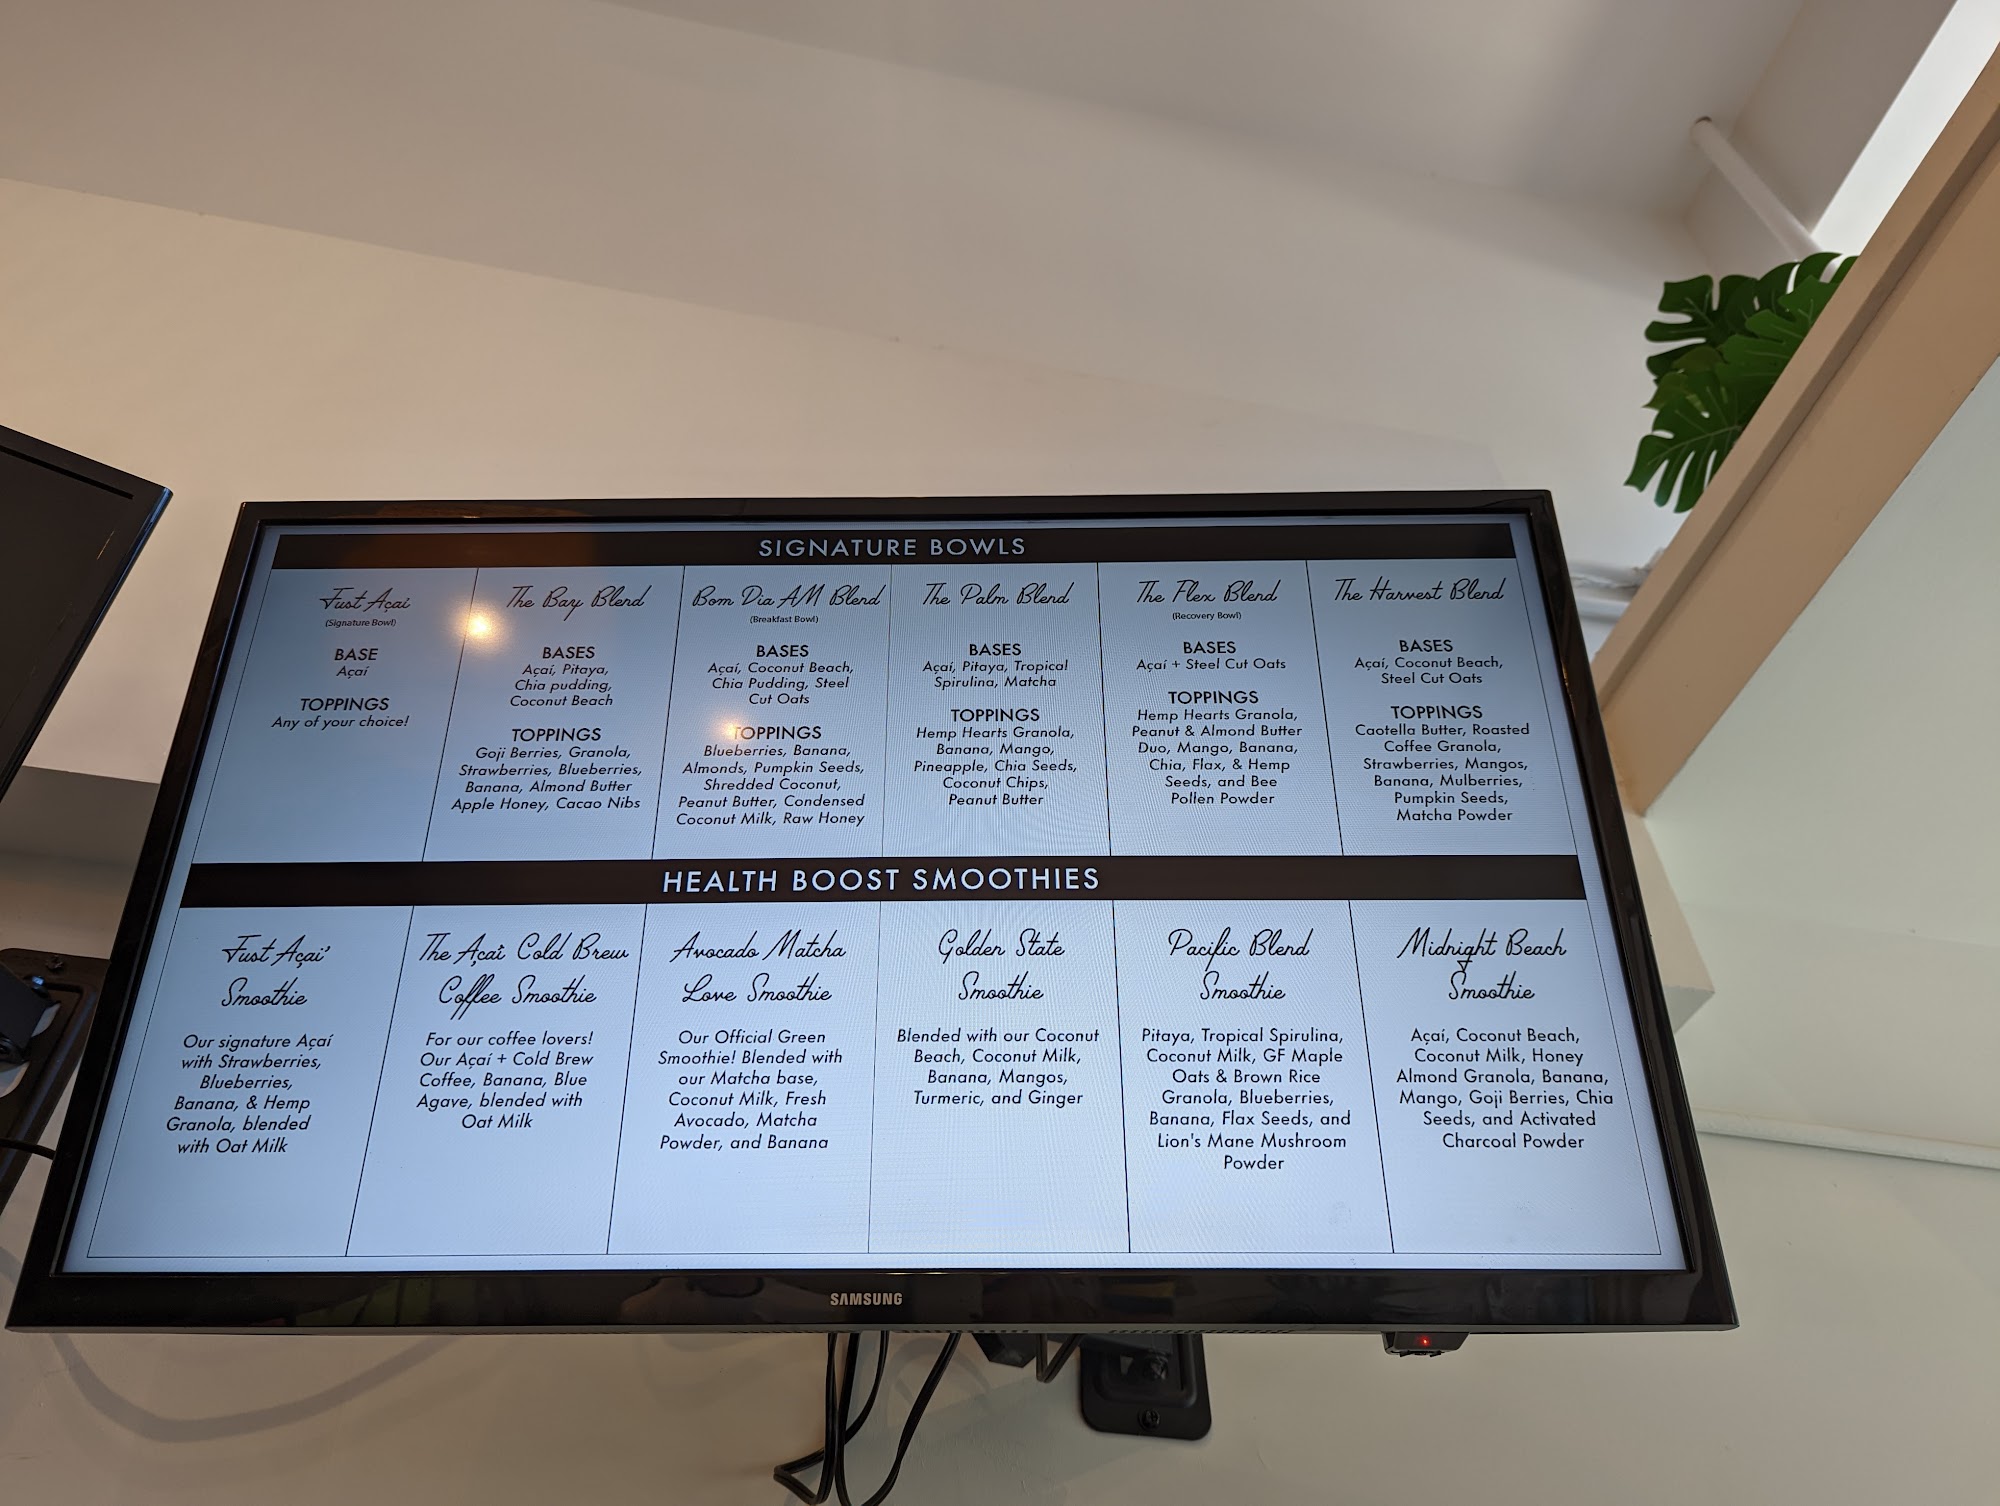 SIGNATURE BOWLS
Just Açaí
(Signature Bowl)
BASE
Açaí
TOPPINGS
Any of your choice!
The Bay Blend
BASES
Açaí, Pitaya,
Chia pudding,
Coconut Beach
TOPPINGS
Goji Berries, Granola,
Strawberries, Blueberries,
Banana, Almond Butter
Apple Honey, Cacao Nibs
Bom Dia AM Blend
(Breakfast Bowl)
BASES
Açaí, Coconut Beach,
Chia Pudding, Steel
Cut Oats
TOPPINGS
Blueberries, Banana,
Almonds, Pumpkin Seeds,
Shredded Coconut,
Peanut Butter, Condensed
Coconut Milk, Raw Honey
The Palm Blend
BASES
Açaí, Pitaya, Tropical
Spirulina, Matcha
TOPPINGS
Hemp Hearts Granola,
Banana, Mango,
Pineapple, Chia Seeds,
Coconut Chips,
Peanut Butter
The Flex Blend
(Recovery Bowl)
BASES
Açaí + Steel Cut Oats
TOPPINGS
Hemp Hearts Granola,
Peanut & Almond Butter
Duo, Mango, Banana,
Chia, Flax, & Hemp
Seeds, and Bee
Pollen Powder
The Harvest Blend
BASES
Açaí, Coconut Beach,
Steel Cut Oats
TOPPINGS
Caotella Butter, Roasted
Coffee Granola,
Strawberries, Mangos,
Banana, Mulberries,
Pumpkin Seeds,
Matcha Powder
HEALTH BOOST SMOOTHIES
Just Açaí
Smoothie
Our signature Açaí
with Strawberries,
Blueberries,
Banana, & Hemp
Granola, blended
with Oat Milk
The Açaí Cold Brew
Coffee Smoothie
For our coffee lovers!
Our Açaí + Cold Brew
Coffee, Banana, Blue
Agave, blended with
Oat Milk
Avocado Matcha
Love Smoothie
Our Official Green
Smoothie! Blended with
our Matcha base,
Coconut Milk, Fresh
Avocado, Matcha
Powder, and Banana
Golden State
Smoothie
Blended with our Coconut
Beach, Coconut Milk,
Banana, Mangos,
Turmeric, and Ginger
Pacific Blend
Smoothie
Pitaya, Tropical Spirulina,
Coconut Milk, GF Maple
Oats & Brown Rice
Granola, Blueberries,
Banana, Flax Seeds, and
Lion's Mane Mushroom
Powder
Midnight Beach
Smoothie
Açaí, Coconut Beach,
Coconut Milk, Honey
Almond Granola, Banana,
Mango, Goji Berries, Chia
Seeds, and Activated
Charcoal Powder
SAMSUNG